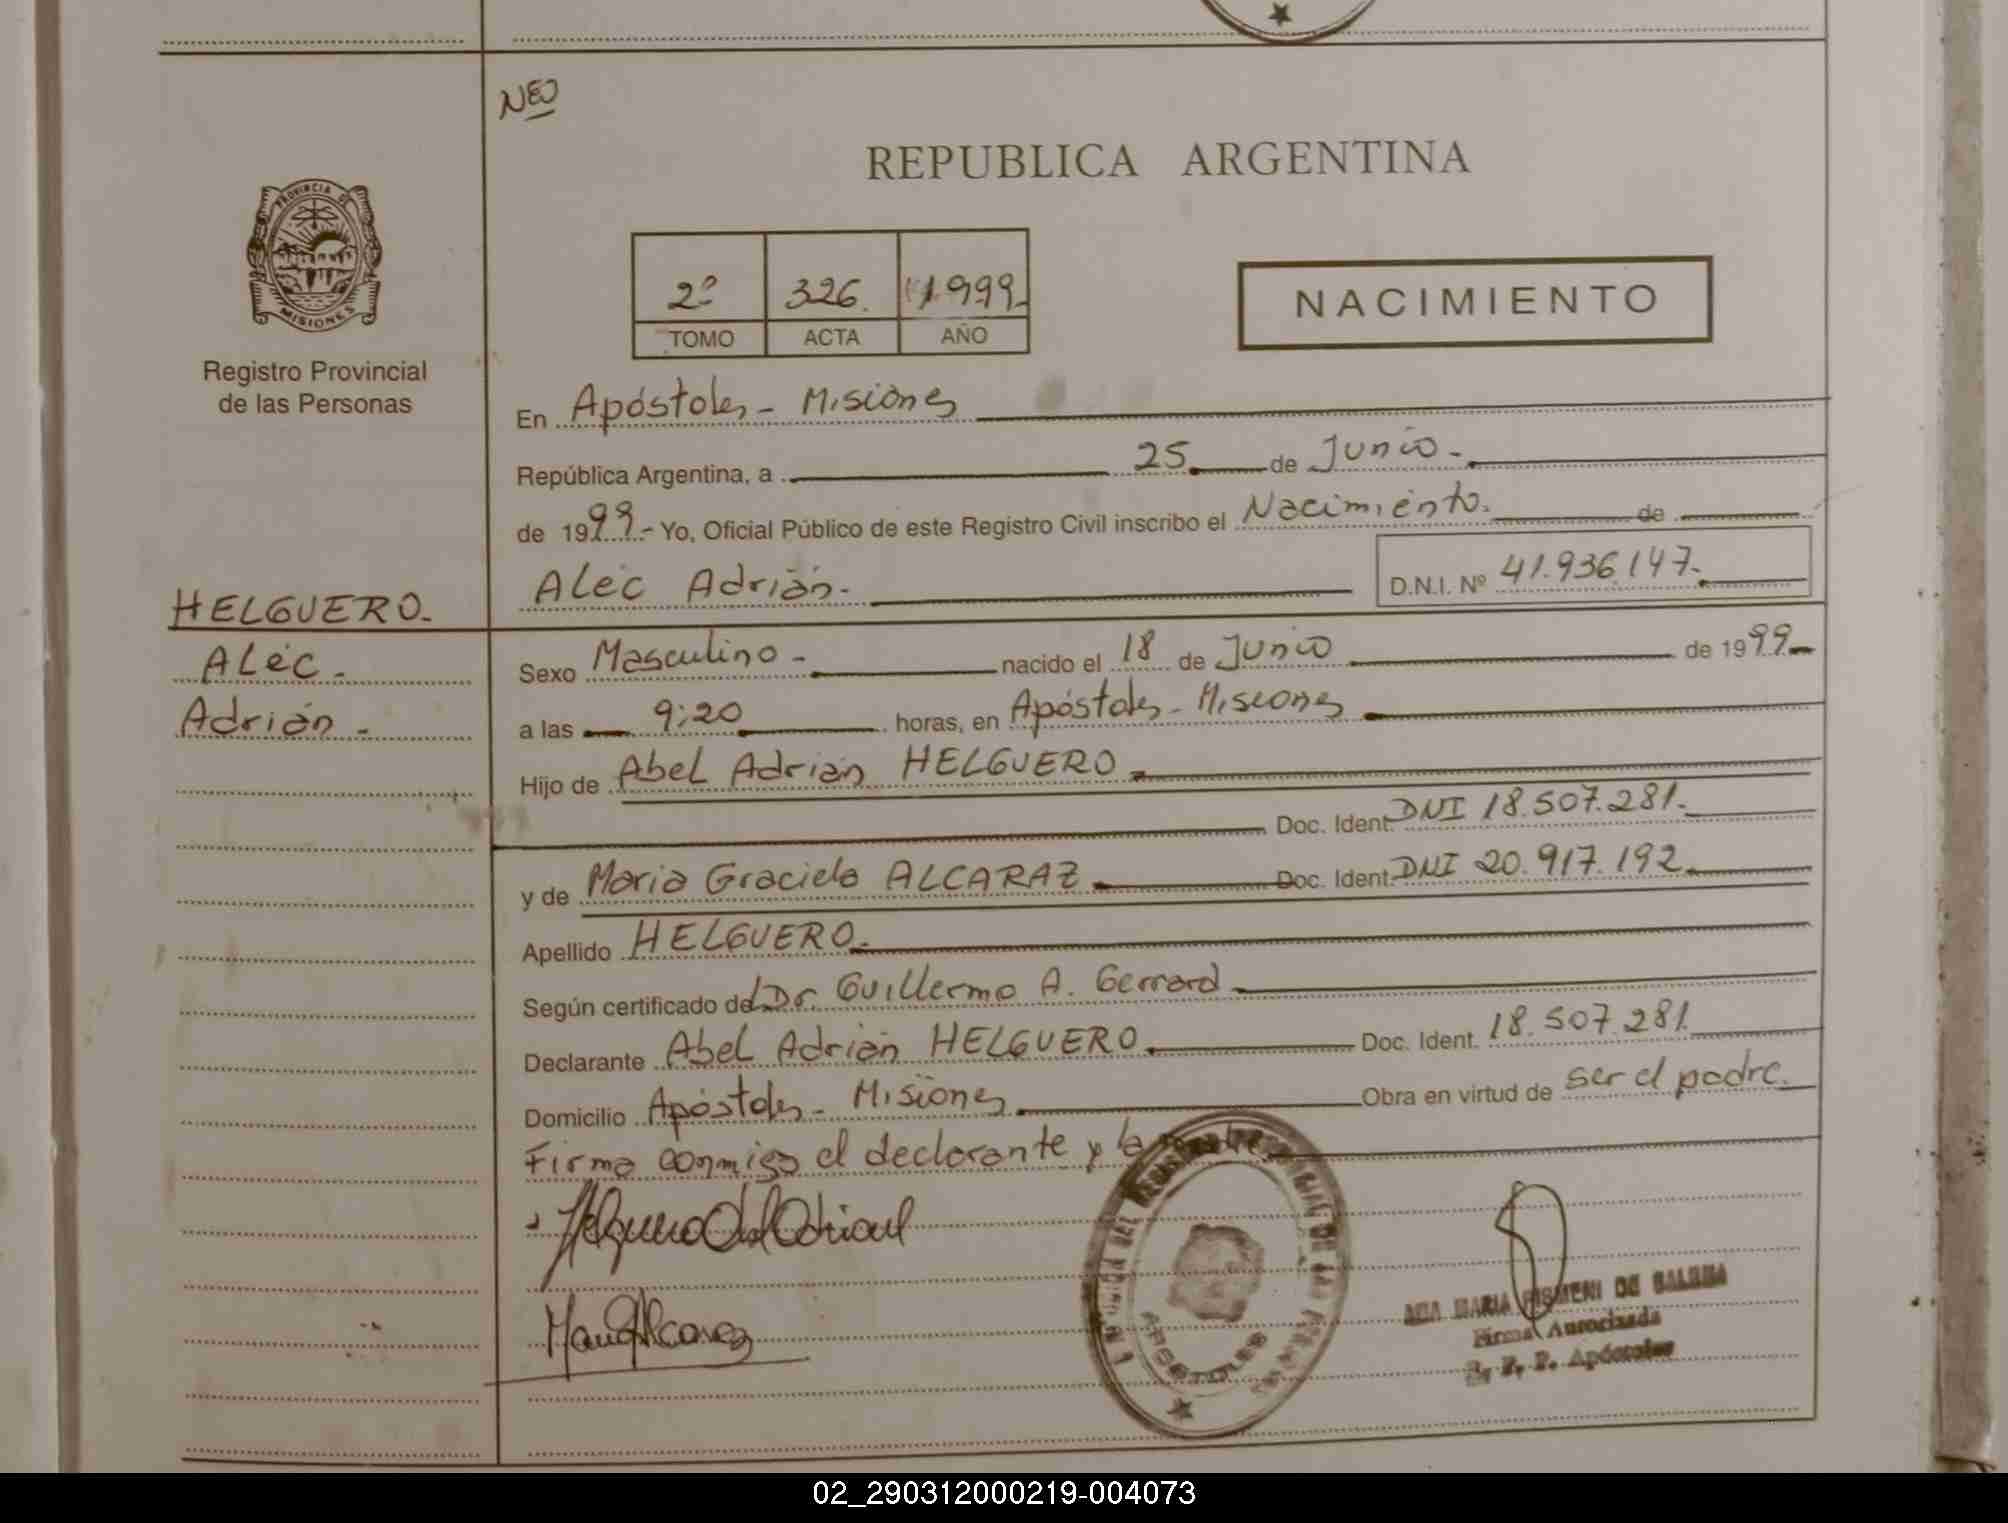 NEO
REPUBLICA ARGENTINA
PROVINCIA DE
MISIONES
Registro Provincial
de las Personas
2º 326. 1999-
TOMO ACTA AÑO
NACIMIENTO
En Apóstoles - Misiones
República Argentina, a 25 de Junio -
de 1999.- Yo, Oficial Público de este Registro Civil inscribo el Nacimiento. de
Alec Adrián.- D.N.I. Nº 41.936.147.-
HELGUERO.-
Alec.-
Adrián -
Sexo Masculino - nacido el 18 de Junio de 1999.-
a las 9:20 horas, en Apóstoles - Misiones
Hijo de Abel Adrián HELGUERO
Doc. Ident. DNI 18.507.281.-
y de Maria Graciela ALCARAZ Doc. Ident. DNI 20.917.192
Apellido HELGUERO.-
Según certificado del Dr. Guillermo A. Gerrard
Declarante Abel Adrián HELGUERO Doc. Ident. 18.507.281.
Domicilio Apóstoles - Misiones Obra en virtud de ser el padre.
Firma conmigo el declarante y la
Helguero Abel Adrian
ADA MARIA DE
Firma Autorizada
R. P. P. Apóstoles
APOSTOLES
02_290312000219-004073